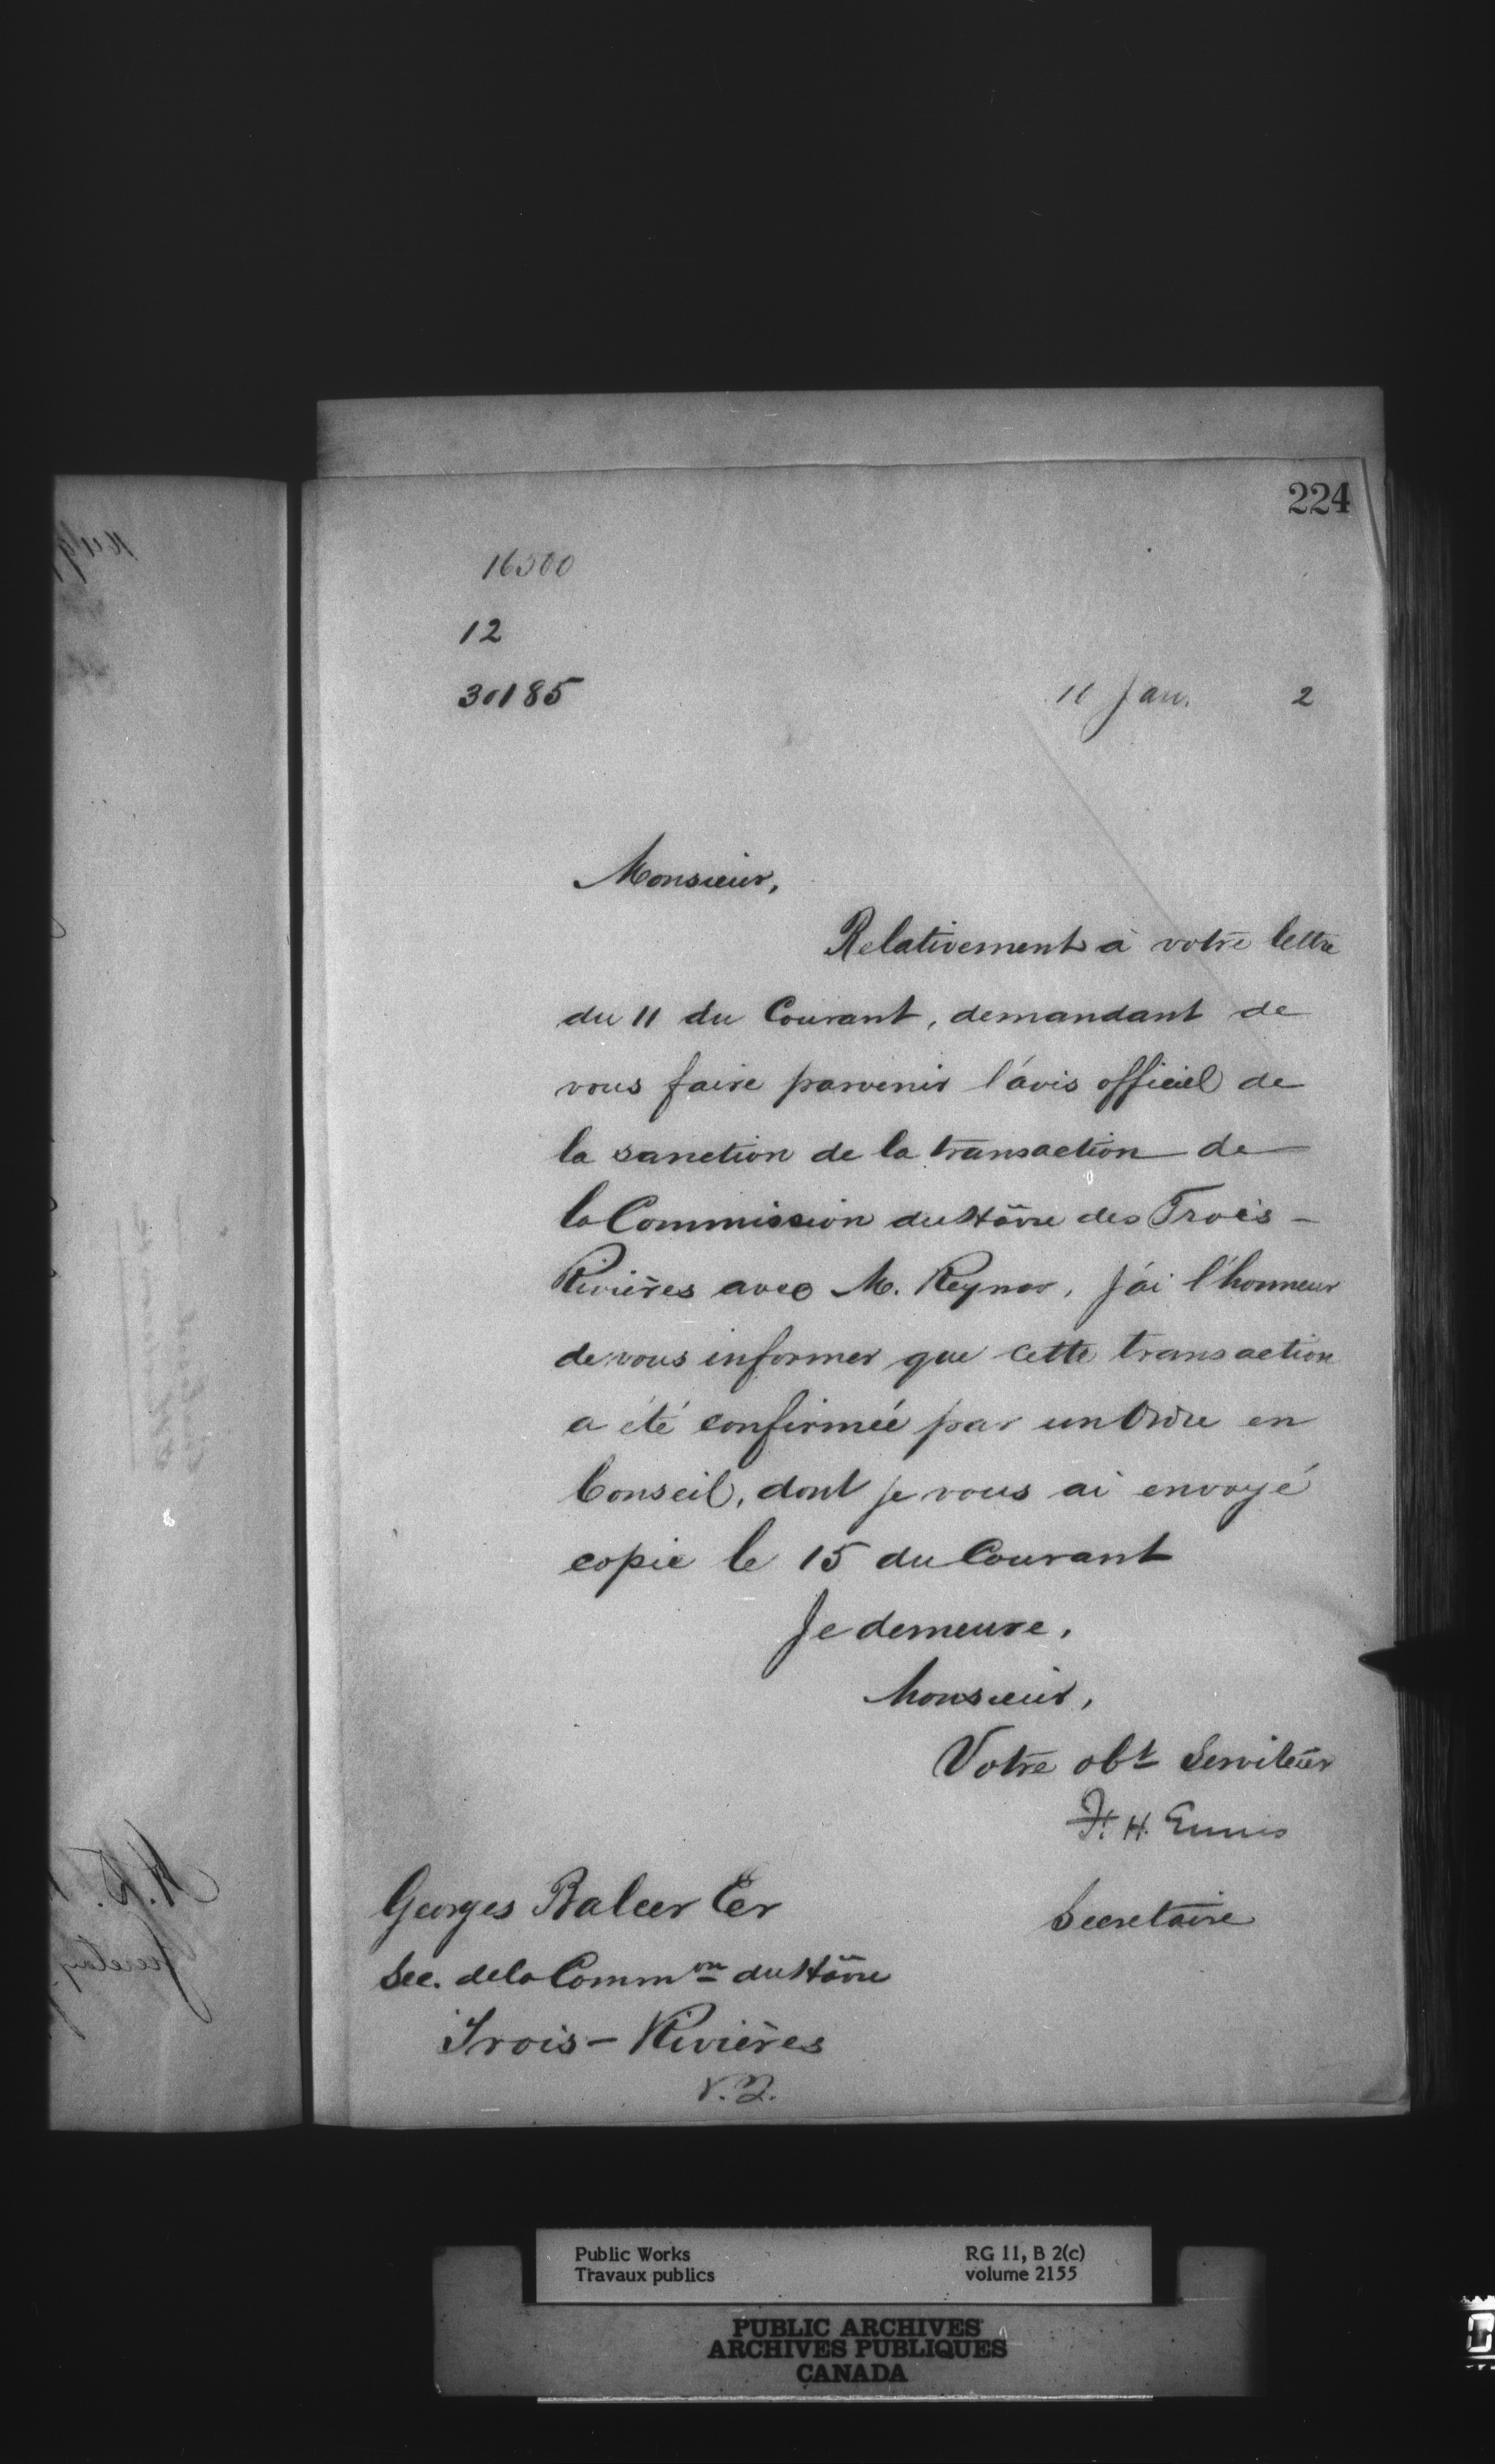 224
16500
12
30185
11 Jan. 2
Monsieur,
Relativement à votre lettre
du 11 du Courant, demandant de
vous faire parvenir l'avis officiel de
la sanction de la transaction de
la Commission du Hâvre des Trois-
Rivières avec M. Reynar, j'ai l'honneur
de vous informer que cette transaction
a été confirmée par un Ordre en
Conseil, dont je vous ai envoyé
copie le 15 du Courant
Je demeure,
Monsieur,
Votre obt Serviteur
F. H. Ennis
Secretaire
Georges Balcer Cer
Sec. de la Common du Hâvre
Trois-Rivières
Public Works
Travaux publics
RG 11, B 2(c)
volume 2155
PUBLIC ARCHIVES
ARCHIVES PUBLIQUES
CANADA